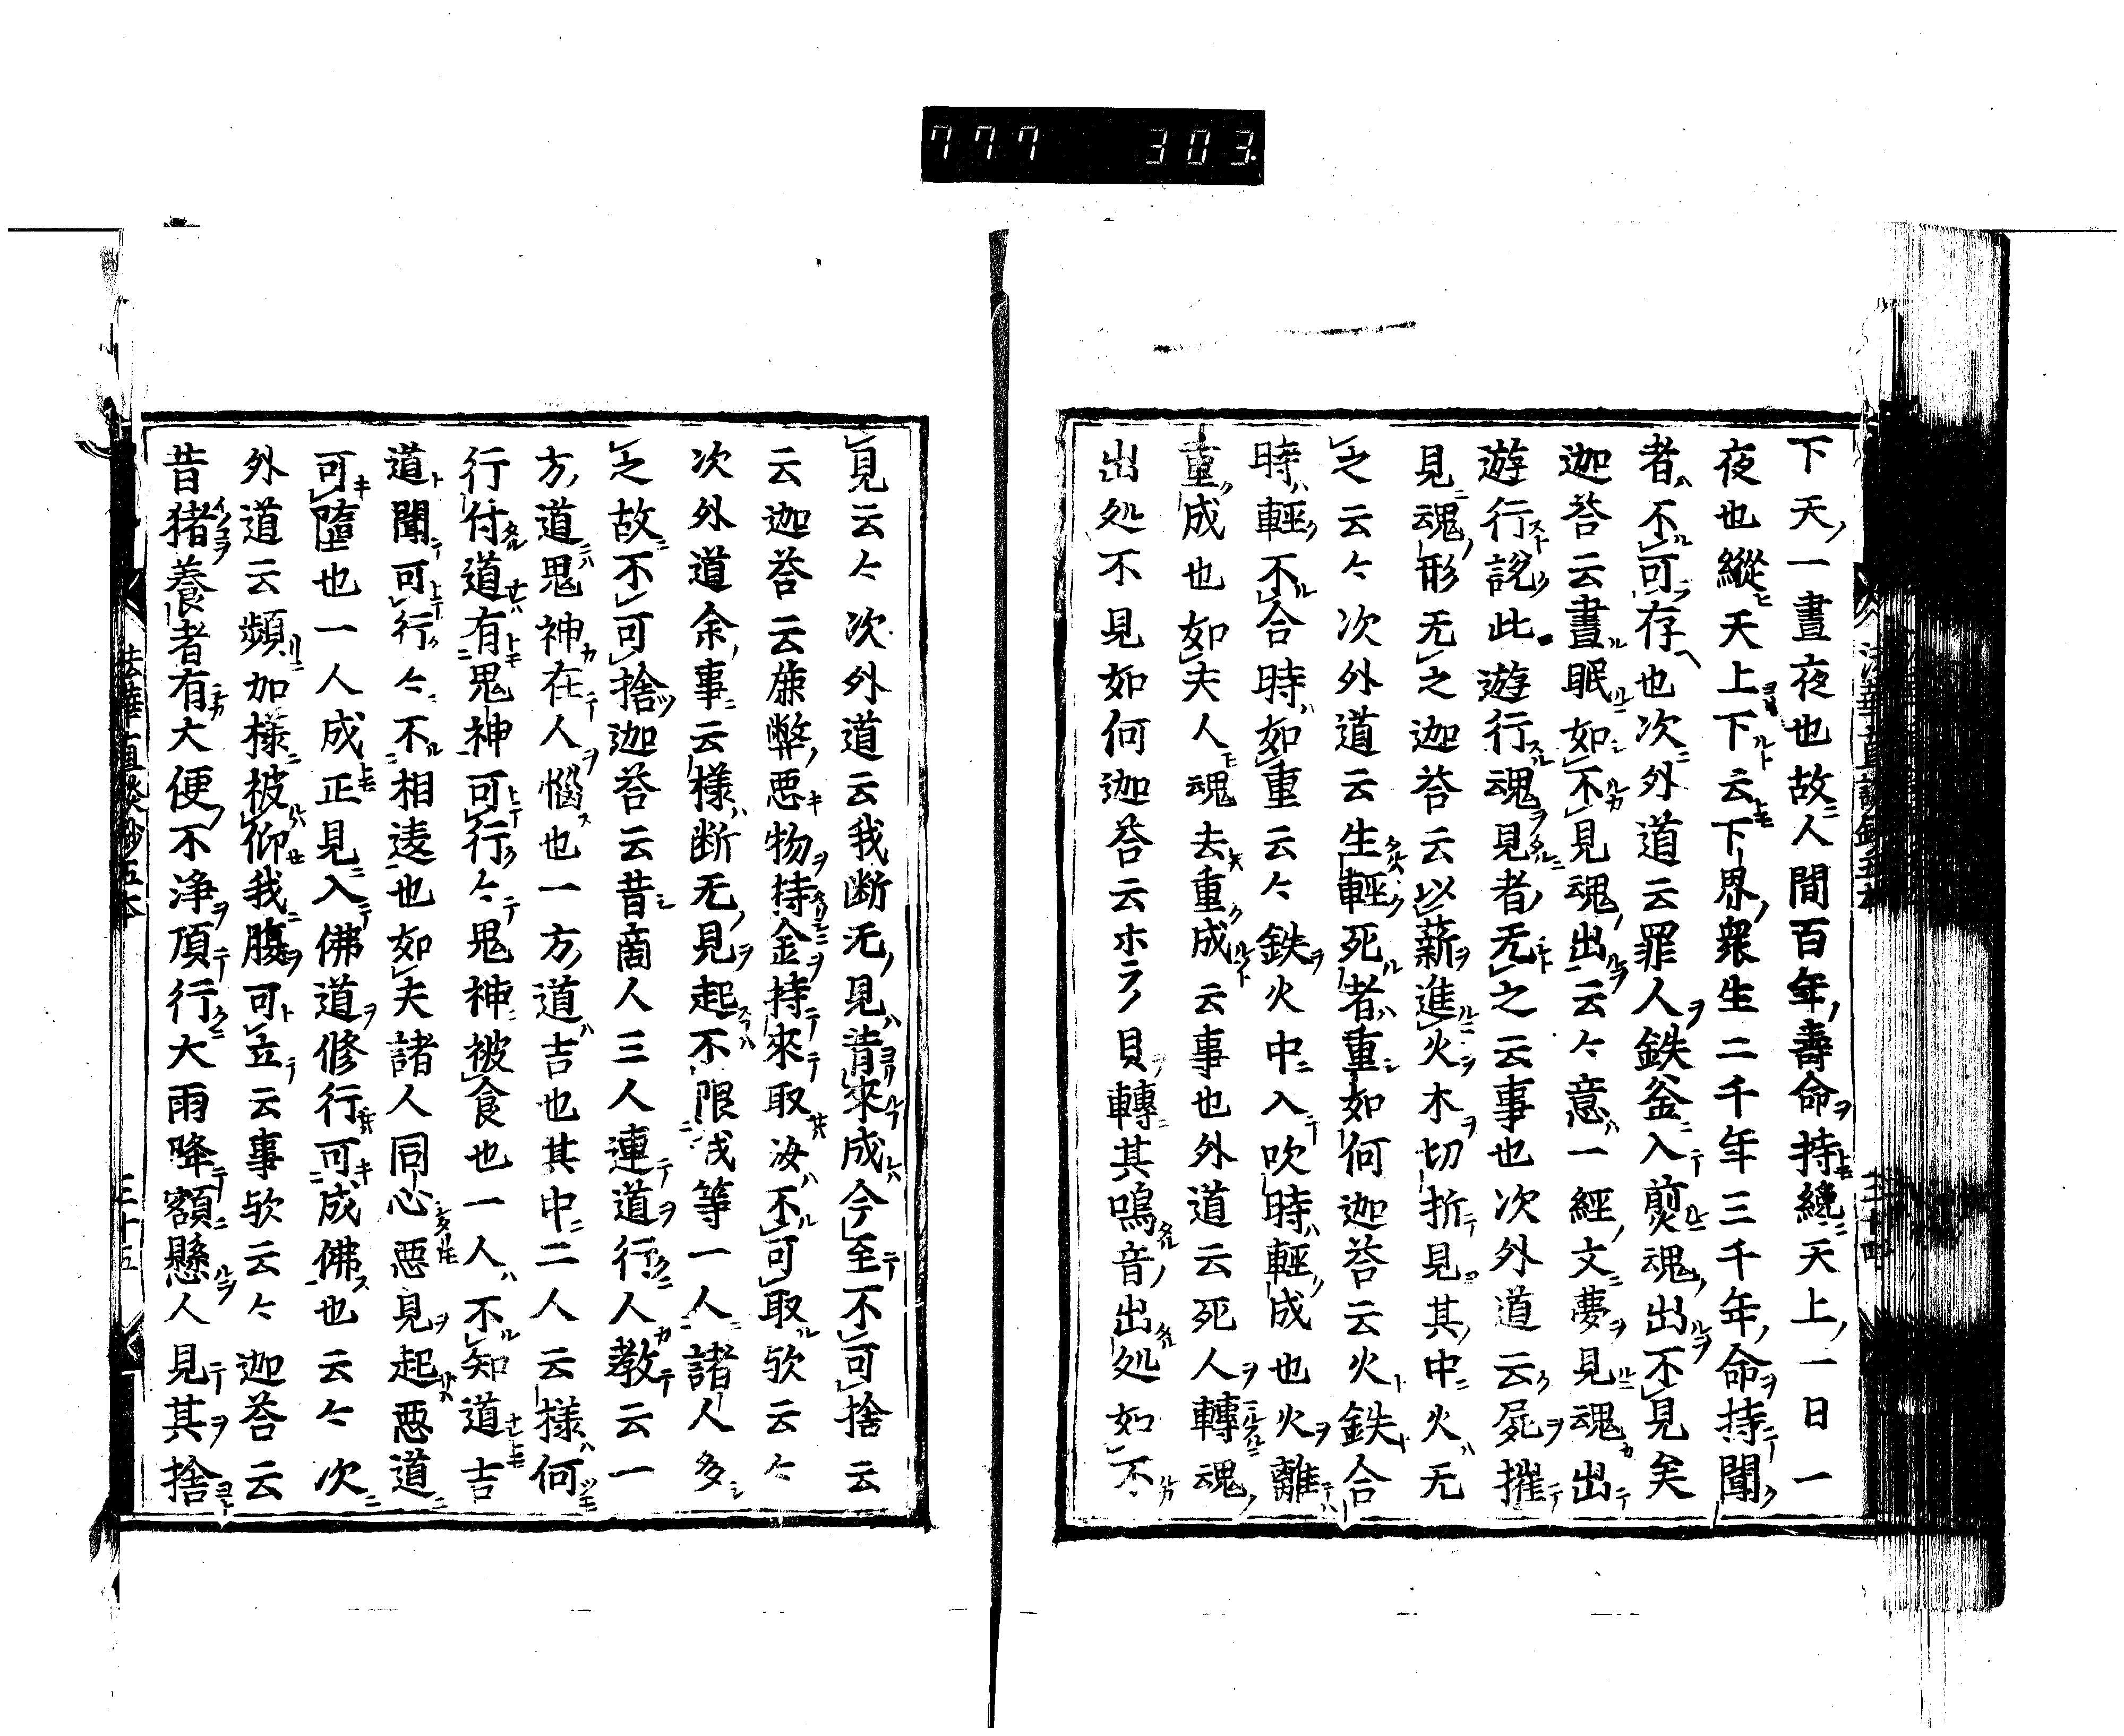 777 303
下天ノ一晝夜也故ニ人間百年ノ壽命ヲ持トモ纔ニ天上ノ一日一
夜也縱ヒ天上ヨリ下ルト云トモ下界ノ衆生二千年三千年ノ命ヲ持テ聞ク
者ハ不ル可ラ存ヘ也次ニ外道云罪人ヲ鉄釜ニ入テ煎ルニ魂ノ出ルヲ不見矣
迦荅云晝ル眠ルニ如シ不ルカ見魂ノ出ルヲ云々意ハ一經ノ文ニ夢ヲ見ルニ魂カ出テ
遊行スト説ク此遊行スル魂ヲ見タルニ者ノ无ト之云事也次外道云ク屍ヲ摧テ
見ニ魂ノ形无之迦荅云以薪ヲ進ルニ火ヲ木ヲ切折テ見其ノ中ニ火ハ无
之云々次外道云生タルハ輕ク死ル者ハ重シ如何迦荅云火ト鉄ト合
時ハ輕ク不ル合時ハ如重云々鉄ヲ火中ニ入テ吹時ハ輕ク成也火ヲ離テハ
重ク成也如夫人モ魂去テ重ク成ルト云事也外道云死人ヲ轉ルニ魂ノ
出処不見如何迦荅云ホラノ貝轉ニ其鳴タル音ノ出タル処如不ルカ
法華直談鈔五本 三十四
見云々次外道云我断无ノ見ハ昔ヨリ來成レハ今至テ不可捨云
云迦荅云云麻弊ノ悪キ物ヲ持タルニ金ヲ持テ來テ取共汝ハ不ル可取ル欤云々
次外道余ノ事ニ云樣ハ断无ノ見ヲ起スヿハ不限我等一人ニ諸人多シ
之故ニ不可捨ツ迦荅云昔シ商人三人連テ道ヲ行クニ人カ教テ云一
方ノ道ニハ鬼神カ在テ人ヲ惱ス也一方ノ道ハ吉也其中ニ二人云樣ハ何
行付タル道ナレハ有トモ鬼神可トテ行ク々テ鬼神ニ被食也一人ハ不ル知道ナレトモ吉
道ト聞テ可トテ行ク々ニ不ル相違也如夫諸人同心シタレトモ悪見ヲ起サハ悪道ニ
可キ墮也一人成トモ正見ニ入テ佛道ヲ修行セハ可キ成佛ス也云々次ニ
外道云頻リニ加樣ニ被ルハ仰セ我ニ腹ヲ可ト立テ云事欤云々迦荅云
昔猪養者有ルカ大便ノ不浄ヲ頂テ行クニ大雨降テ額ニ懸ルヲ人見テ其ヲ捨ヨト
法華直談鈔五本 三十五